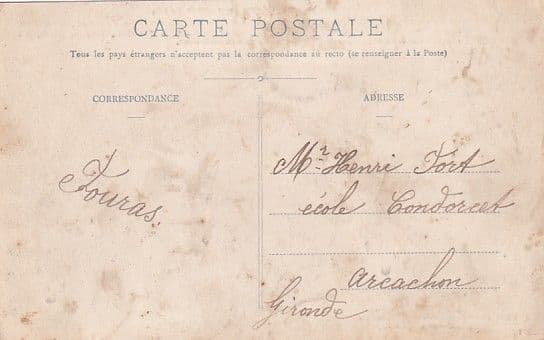 CARTE POSTALE
Tous les pays étrangers n'acceptent pas la correspondance au recto (se renseigner à la Poste)
CORRESPONDANCE
ADRESSE
Fouras.
Mr Henri Fort
école Condorcet
Arcachon
Gironde